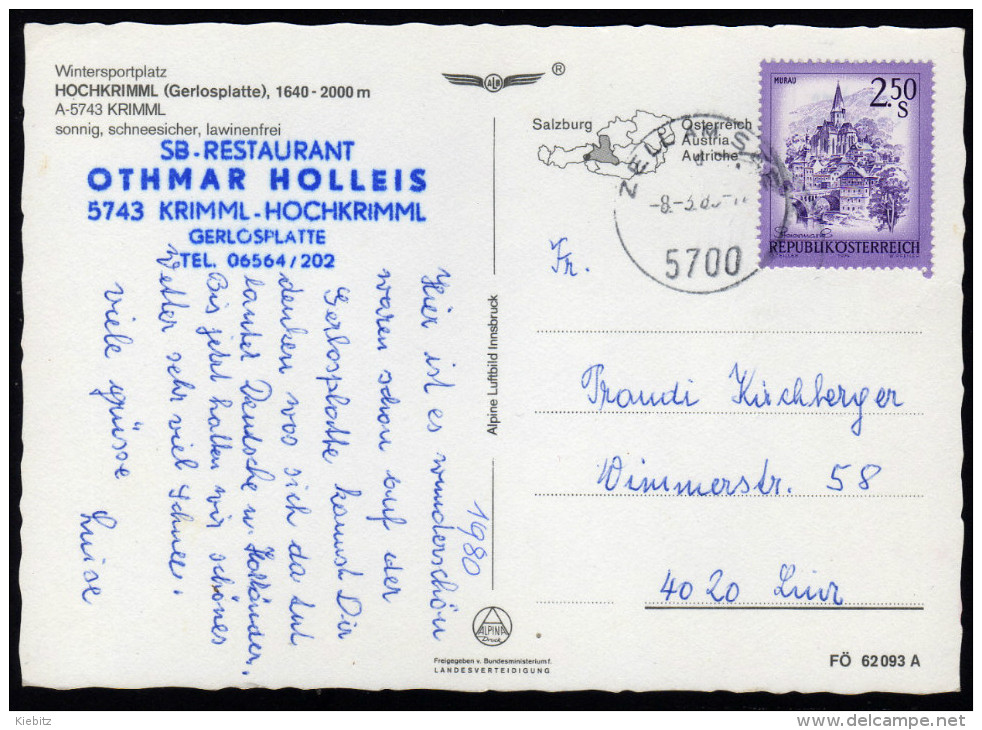 Wintersportplatz
HOCHKRIMML (Gerlosplatte), 1640-2000 m
A-5743 KRIMML
sonnig, schneesicher, lawinenfrei
SB-RESTAURANT
OTHMAR HOLLEIS
5743 KRIMML-HOCHKRIMML
GERLOSPLATTE
TEL. 06564/202
1980
Hier ist es wunderschön
waren schon auf der
Gerlosplatte kannst Dir
denken was sich da tut
lauter Deutsche u. Holländer.
Bis jetzt hatten wir schönes
Wetter sehr viel Schnee.
viele grüsse
Luise
ALB
®
Alpine Luftbild Innsbruck
ALPINA
Druck
Freigegeben v. Bundesministerium f.
LANDESVERTEIDIGUNG
Salzburg
Österreich
Austria
Autriche
ZELL AM SEE
5700
MURAU
2.50
S
REPUBLIK ÖSTERREICH
Fr.
Traudi Kirchberger
Wimmerstr. 58
4020 Linz
FÖ 62093 A
Kiebitz
www.delcampe.net